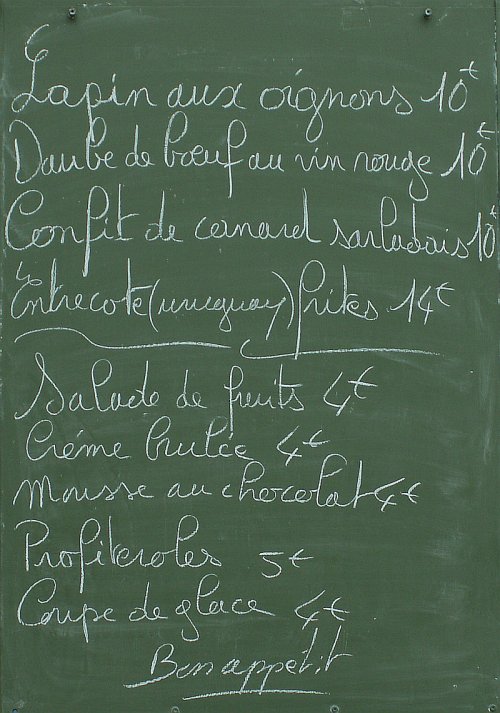 Lapin aux oignons 10€
Daube de bœuf au vin rouge 10€
Confit de canard sarladais 10€
Entrecote (uruguay) frites 14€
Salade de fruits 4€
Crème brulée 4€
Mousse au chocolat 4€
Profiteroles 5€
Coupe de glace 4€
Bon appétit